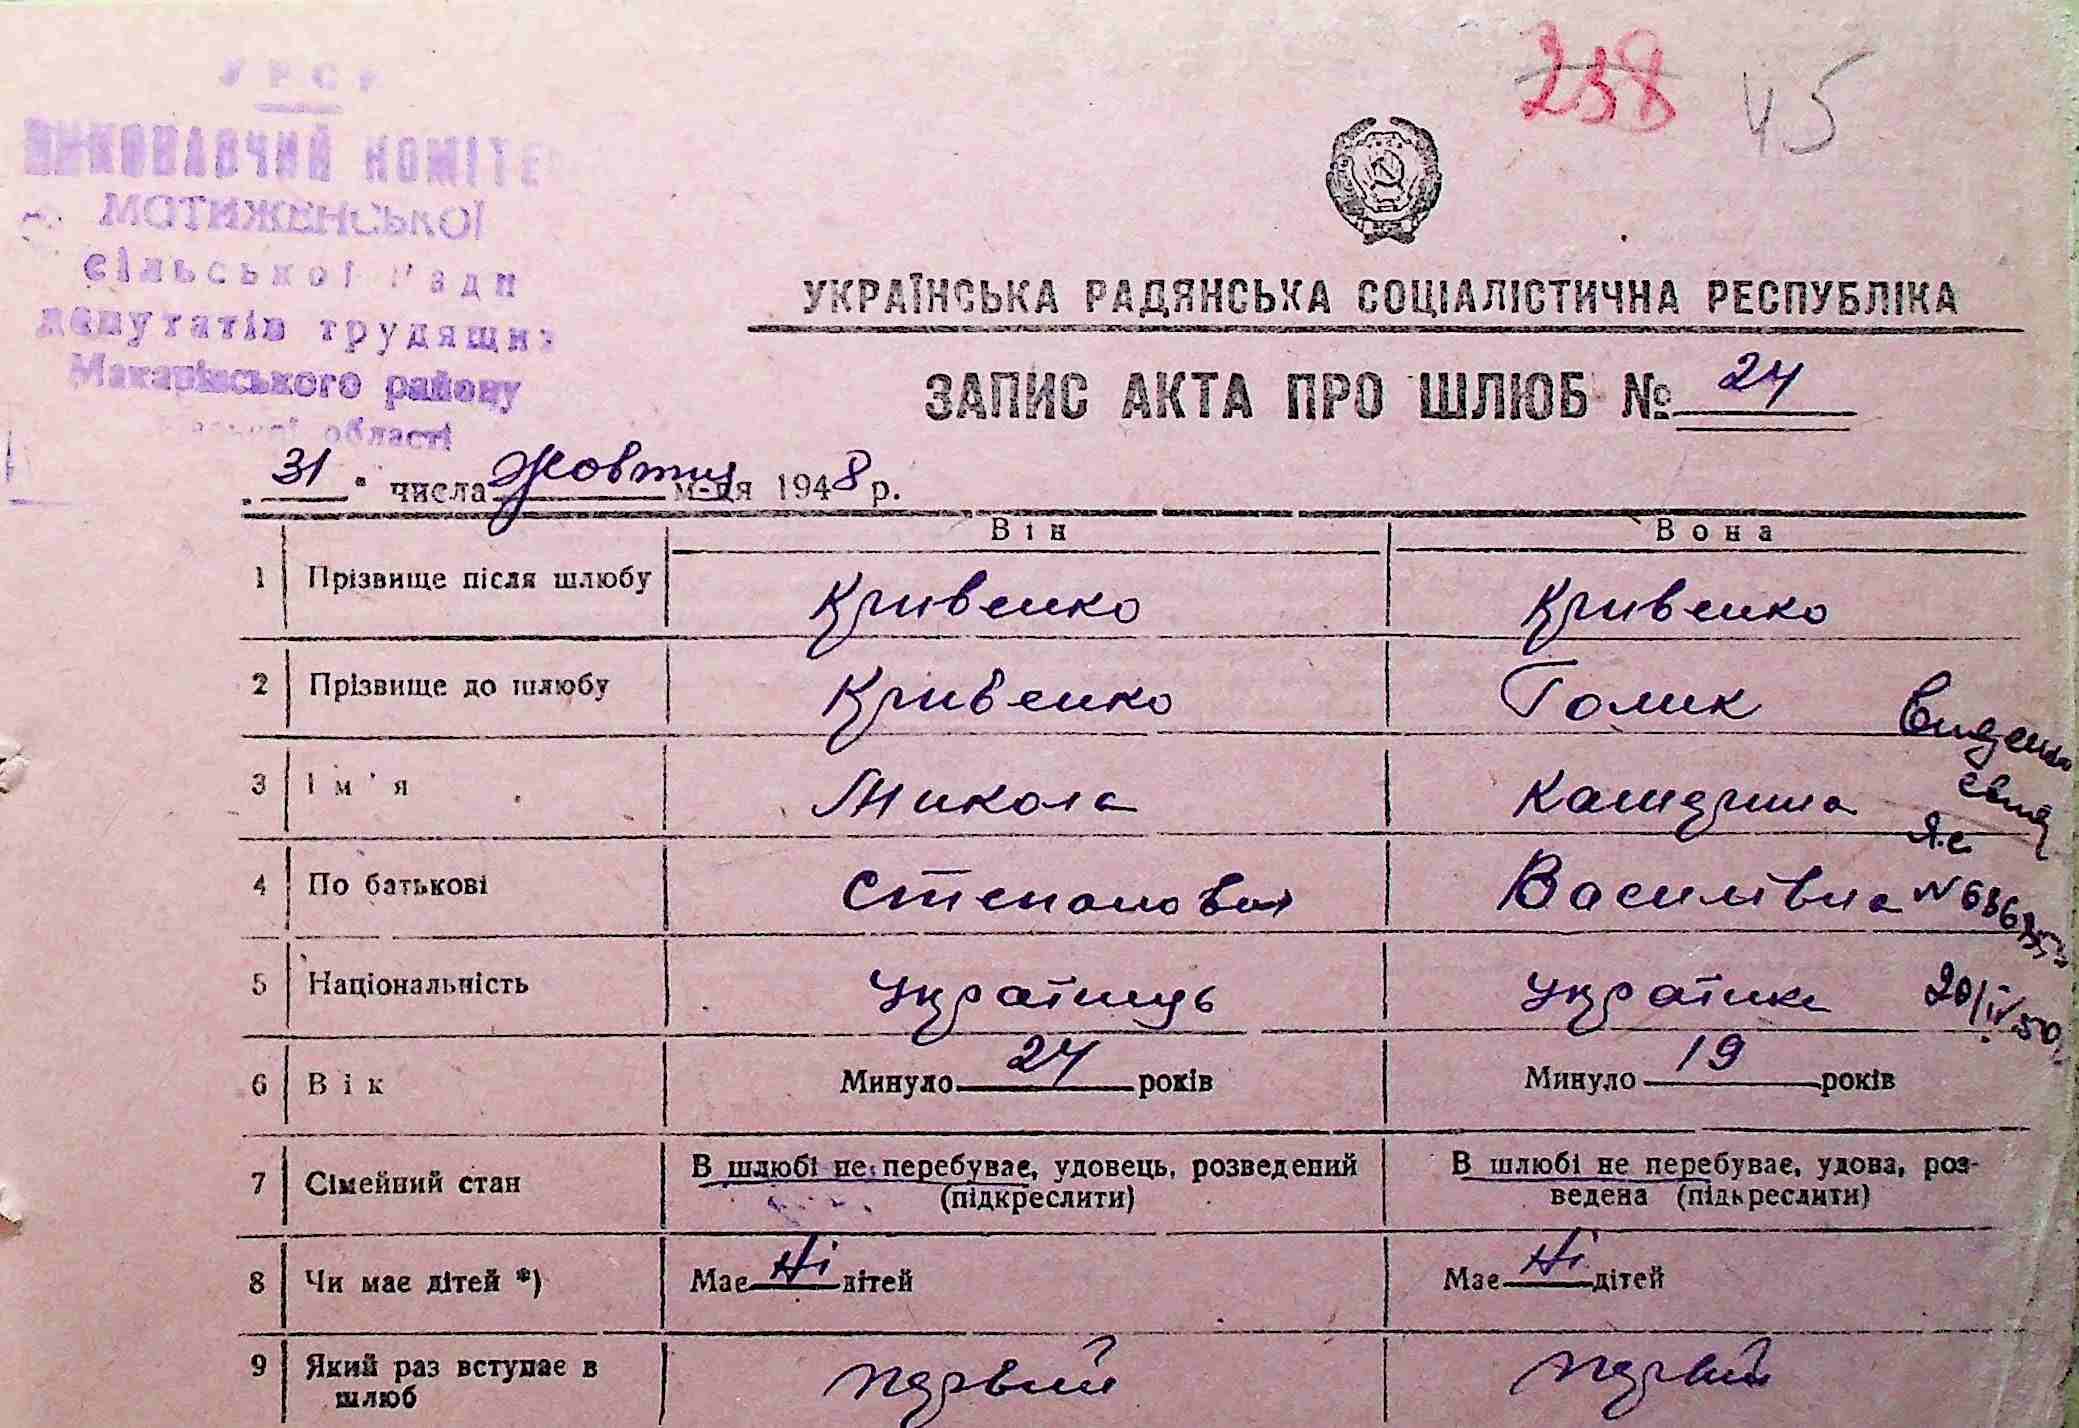 УРСР
ВИКОНАВЧИЙ КОМІТЕ
МОТИЖЕНСЬКОЇ
сільської Ради
депутатів трудящих
Макарівського району
області
238 45
УКРАЇНСЬКА РАДЯНСЬКА СОЦІАЛІСТИЧНА РЕСПУБЛІКА
ЗАПИС АКТА ПРО ШЛЮБ № 24
„31" числа жовтня м-ця 1948 р.
Він Вона
1 Прізвище після шлюбу Кривенко Кривенко
2 Прізвище до шлюбу Кривенко Голик
3 Ім'я Микола Катерина
4 По батькові Степанович Василівна
5 Національність українець українка 20/IV 50
6 Вік Минуло 24 років Минуло 19 років
7 Сімейний стан В шлюбі не перебуває, удовець, розведений (підкреслити) В шлюбі не перебуває, удова, роз-
ведена (підкреслити)
8 Чи має дітей *) Має Ні дітей Має Ні дітей
9 Який раз вступає в первий первий
шлюб